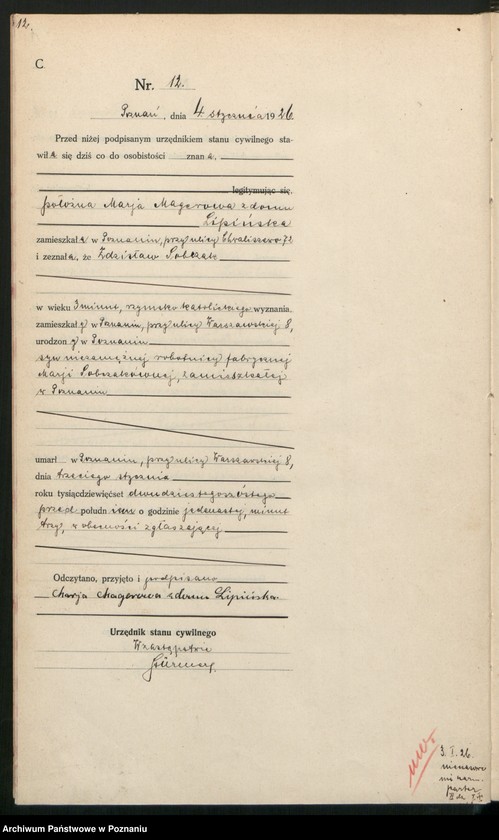 12.
C.
Nr. 12.
Poznań, dnia 4 stycznia 1926
Przed niżej podpisanym urzędnikiem stanu cywilnego sta-
wiła się dziś co do osobistości znana,
legitymując się
położna Marja Magerowa z domu
Lipińska
zamieszkała w Poznaniu, przy ulicy Chwaliszewo 72
i zeznała, że Zdzisław Sobczak
w wieku 3 minut, rzymsko katolickiego wyznania,
zamieszkały w Poznaniu, przy ulicy Warszawskiej 8,
urodzony w Poznaniu
syn niezamężnej robotnicy fabrycznej
Marji Sobczakównej, zamieszkałej
w Poznaniu
umarł w Poznaniu, przy ulicy Warszawskiej 8,
dnia trzeciego stycznia
roku tysiącdziewięćset dwudziestego szóstego
przed połudn o godzinie jedenastej, minut
trzy, w obecności zgłaszającej
Odczytano, przyjęto i podpisano
Marja Magerowa z domu Lipińska
Urzędnik stanu cywilnego
W zastępstwie
3. I. 26.
Archiwum Państwowe w Poznaniu